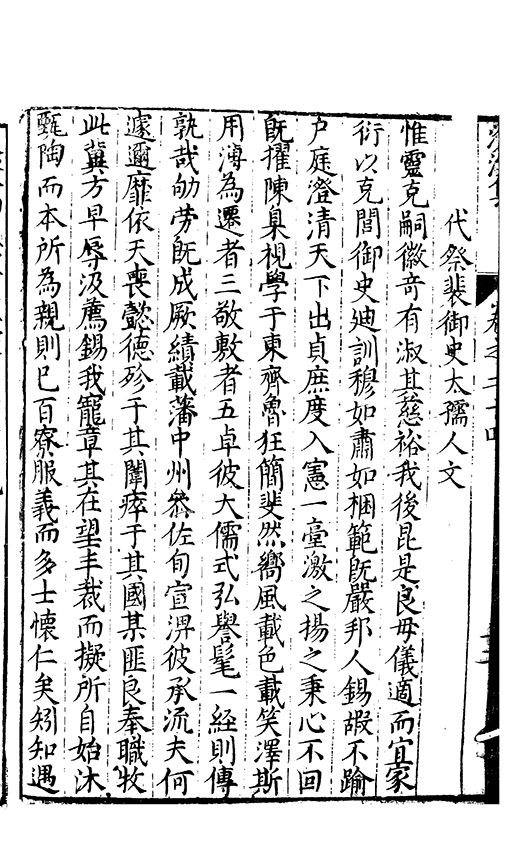 代祭裴御史太孺人文
惟靈克嗣徽音有淑其慈裕我後昆是良母儀適而宜家
衎以克誾御史廸訓穆如肅如梱範旣嚴邦人錫嘏不踰
户庭澄清天下出貞庶度入憲一臺激之揚之秉心不回
旣擢陳臬視學于東齊魯狂簡斐然嚮風載色載笑澤斯
用溥為遷者三敬敷者五卓彼大儒式弘譽髦一經則傳
孰哉劬劳旣成厥績載藩中州叅佐旬宣渳彼承流夫何
遽邇靡依天喪懿德殄于其闈瘁于其國某匪良奉職牧
此冀方早辱汲薦錫我寵章其在望丰裁而擬所自始沐
甄陶而本所為親則已百寮服義而多士懷仁矣矧知遇